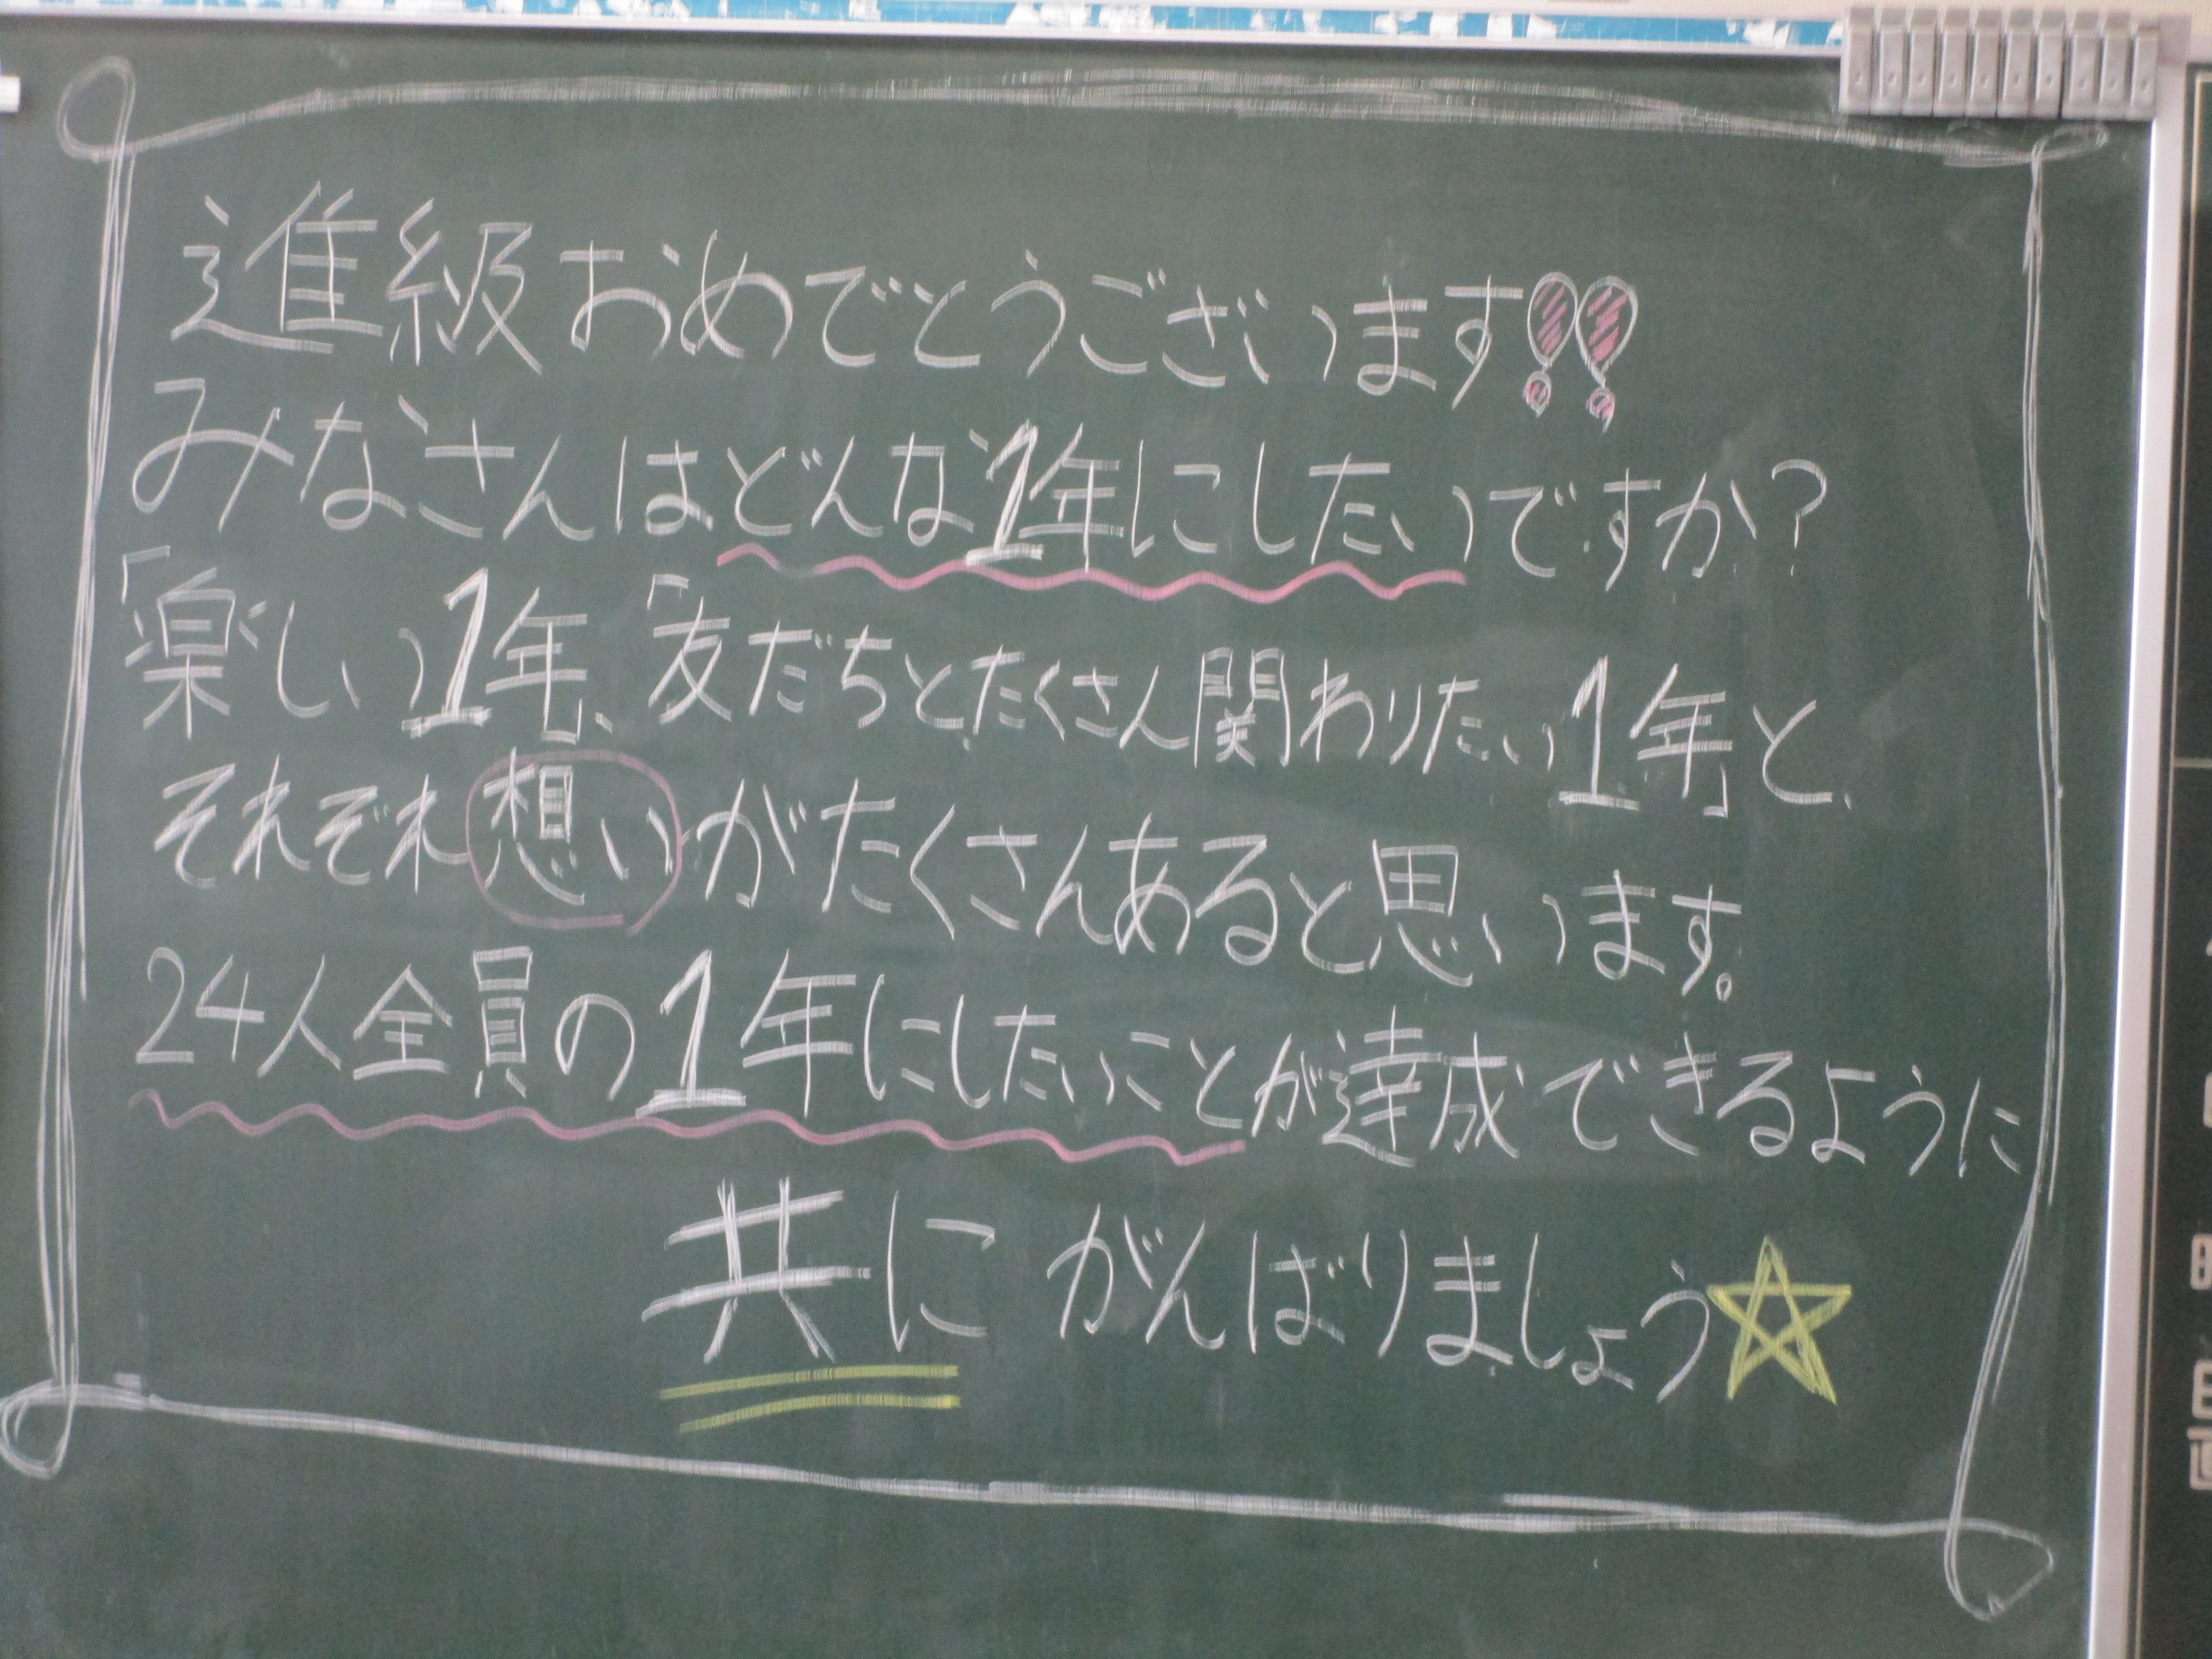 進級おめでとうございます!!
みなさんはどんな1年にしたいですか?
「楽しい1年」、「友だちとたくさん関わりたい1年」と
それぞれ想いがたくさんあると思います。
24人全員の1年にしたいことが達成できるように
共にがんばりましょう☆